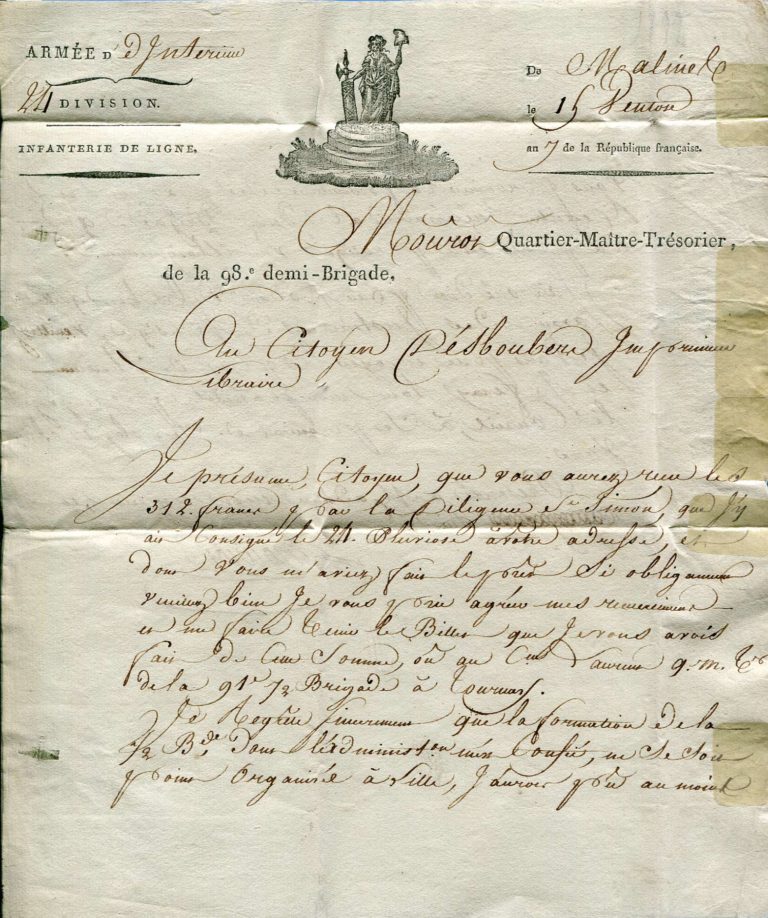 ARMÉE D' d'Interieur
24 DIVISION.
INFANTERIE DE LIGNE.
De Malines
le 15 Ventose
an 7 de la République française.
Mouron Quartier-Maître-Trésorier,
de la 98.e demi-Brigade,
Au Citoyen Désboubers Imprimeur
Libraire
Je présume, Citoyen, que vous aurez reçu les
312. francs par la Diligence St Simon, que J'y
ais Consigné le 24. Pluviose a votre adresse, et
dont vous m'aviez fait le prêt si obligamment
veuillez bien Je vous prie agréer mes remerciment
et me faire tenir le Billet que Je vous avois
fait de Cette Somme, où au Cen Laurent q. m. Ter
de la 91e 1/2 Brigade à Tournay.
Je Regrette sincerement que la formation de la
1/2 Bde, dont l'administon m'est Confiée, ne se soit
point Organisée à Lille, J'aurois pû au moins